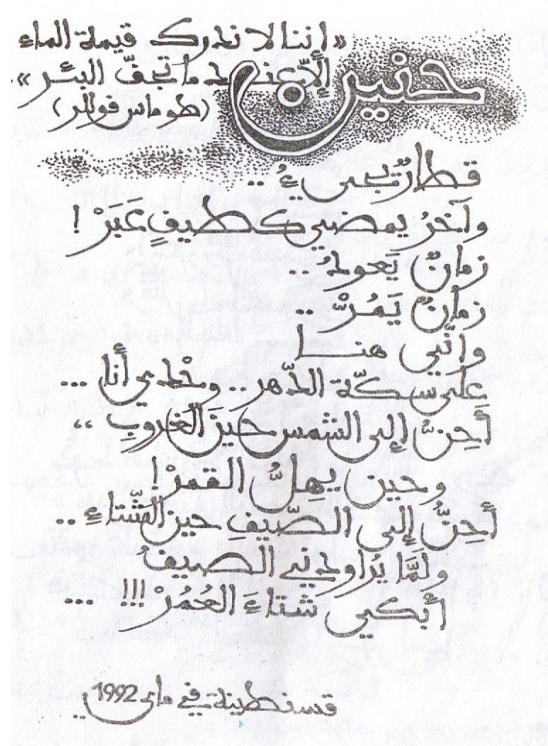 حنين
«إننا لا ندرك قيمة الماء
إلاّ عندما تجفّ البئر»
(طوماس فوللر)
قطارٌ يجيءُ ..
وآخرُ يمضي كطيفٍ عَبَرْ !
زمانٌ يَعودُ ..
زمانٌ يَمُرّْ ..
وإنّي هنــا
على سكّة الدّهر .. وحْدي أنا ...
أَحِنُّ إلى الشمس حينَ الغروبِ ،،
وحين يهلُّ القمرْ
أَحِنُّ إلى الصّيف حين الشّتاءِ ..
ولَمَّا يُراودني الصيف
أبكي شتاءَ العُمُرْ !!! ...
قسنطينة في ماي 1992